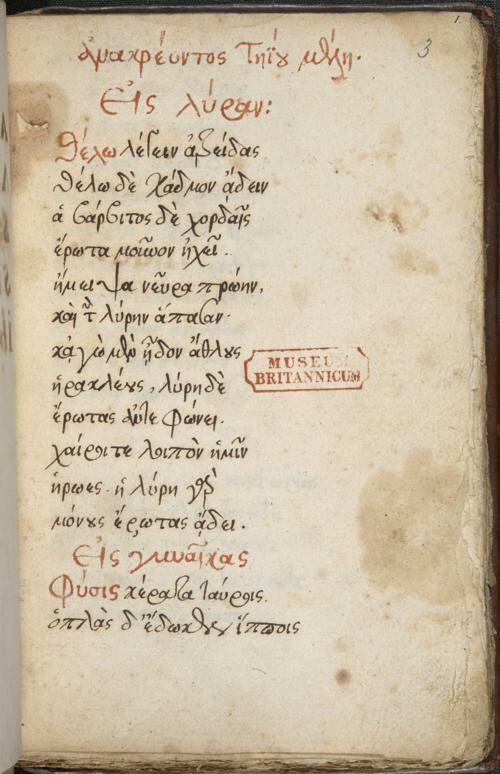 1.
3
ἀνακρέοντος Τηΐου μέλη.
Εἰς λύραν:
Θέλω λέγειν ἀτρείδας
θέλω δὲ κάδμον ἄδειν
ἁ βάρβιτος δὲ χορδαῖς
ἔρωτα μοῦνον ἠχεῖ.
ἤμειψα νεῦρα πρώην,
καὶ τὴν λύρην ἅπασαν.
κἀγὼ μὲν ᾖδον ἄθλους
ἡρακλέους, λύρη δὲ
ἔρωτας
χαίροιτε λοιπὸν ἡμῖν
ἥρωες. ἡ λύρη γὰρ
μόνους ἔρωτας ᾄδει.
Εἰς γυναῖκας
Φύσις κέρατα ταύροις.
ὁπλὰς δ' ἔδωκεν ἵπποις
MUSEUM
BRITANNICUM